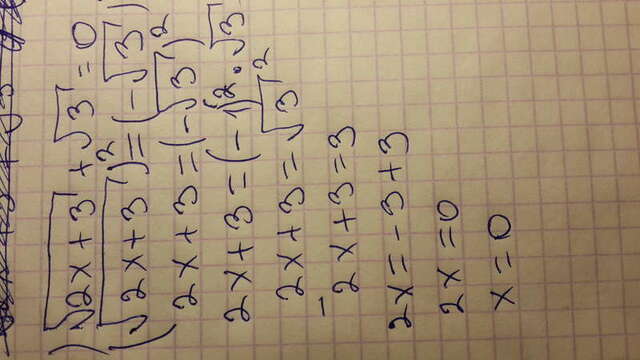 ) √2x+3 + √3 = 0
(√2x+3)² = (-√3)
2x+3 = (-√3)²
2x+3 = (-1)² · √3
2x+3 = √3²
2x+3=3
2x = -3+3
2x = 0
x = 0